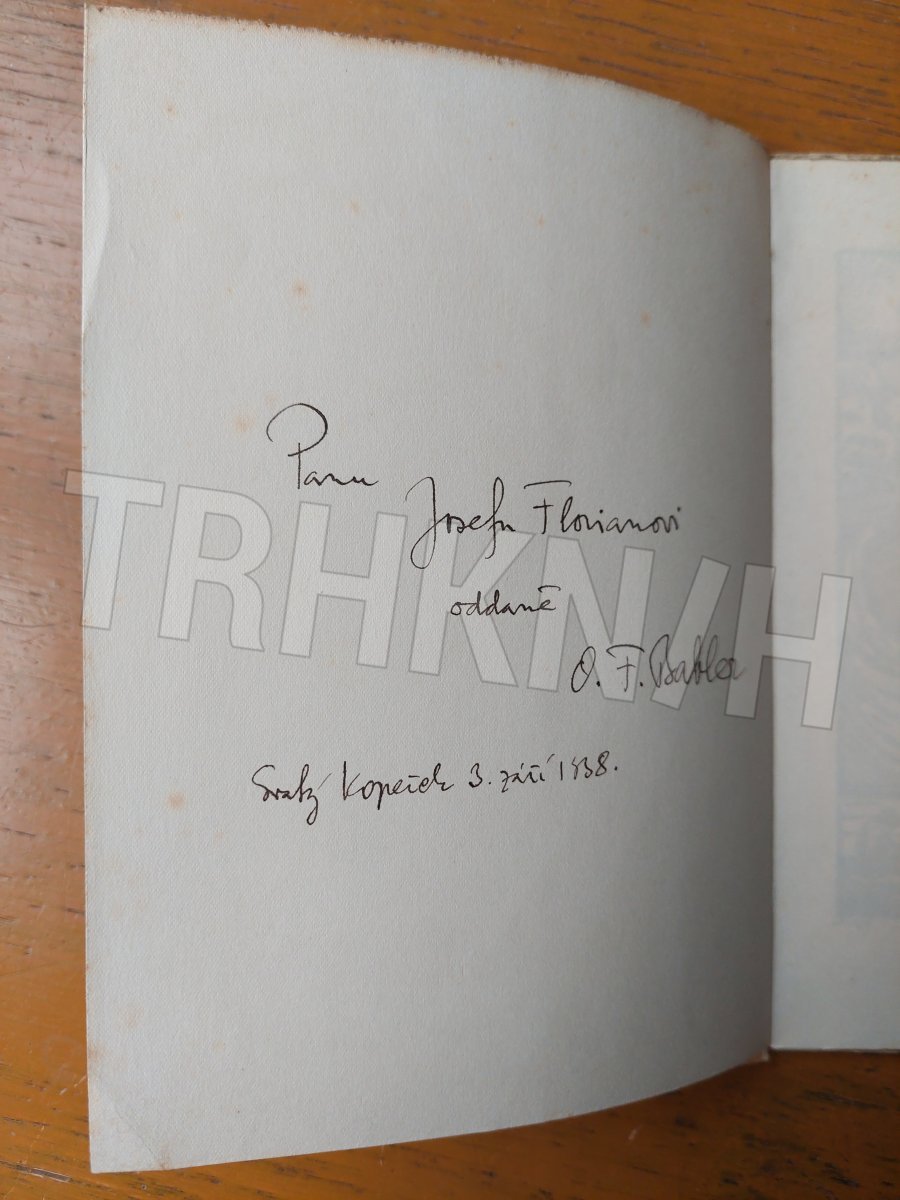 Panu
Josefu Florianovi
oddaně
O. F. Babler
Svatý Kopeček 3. září 1938.
TRHKNIH